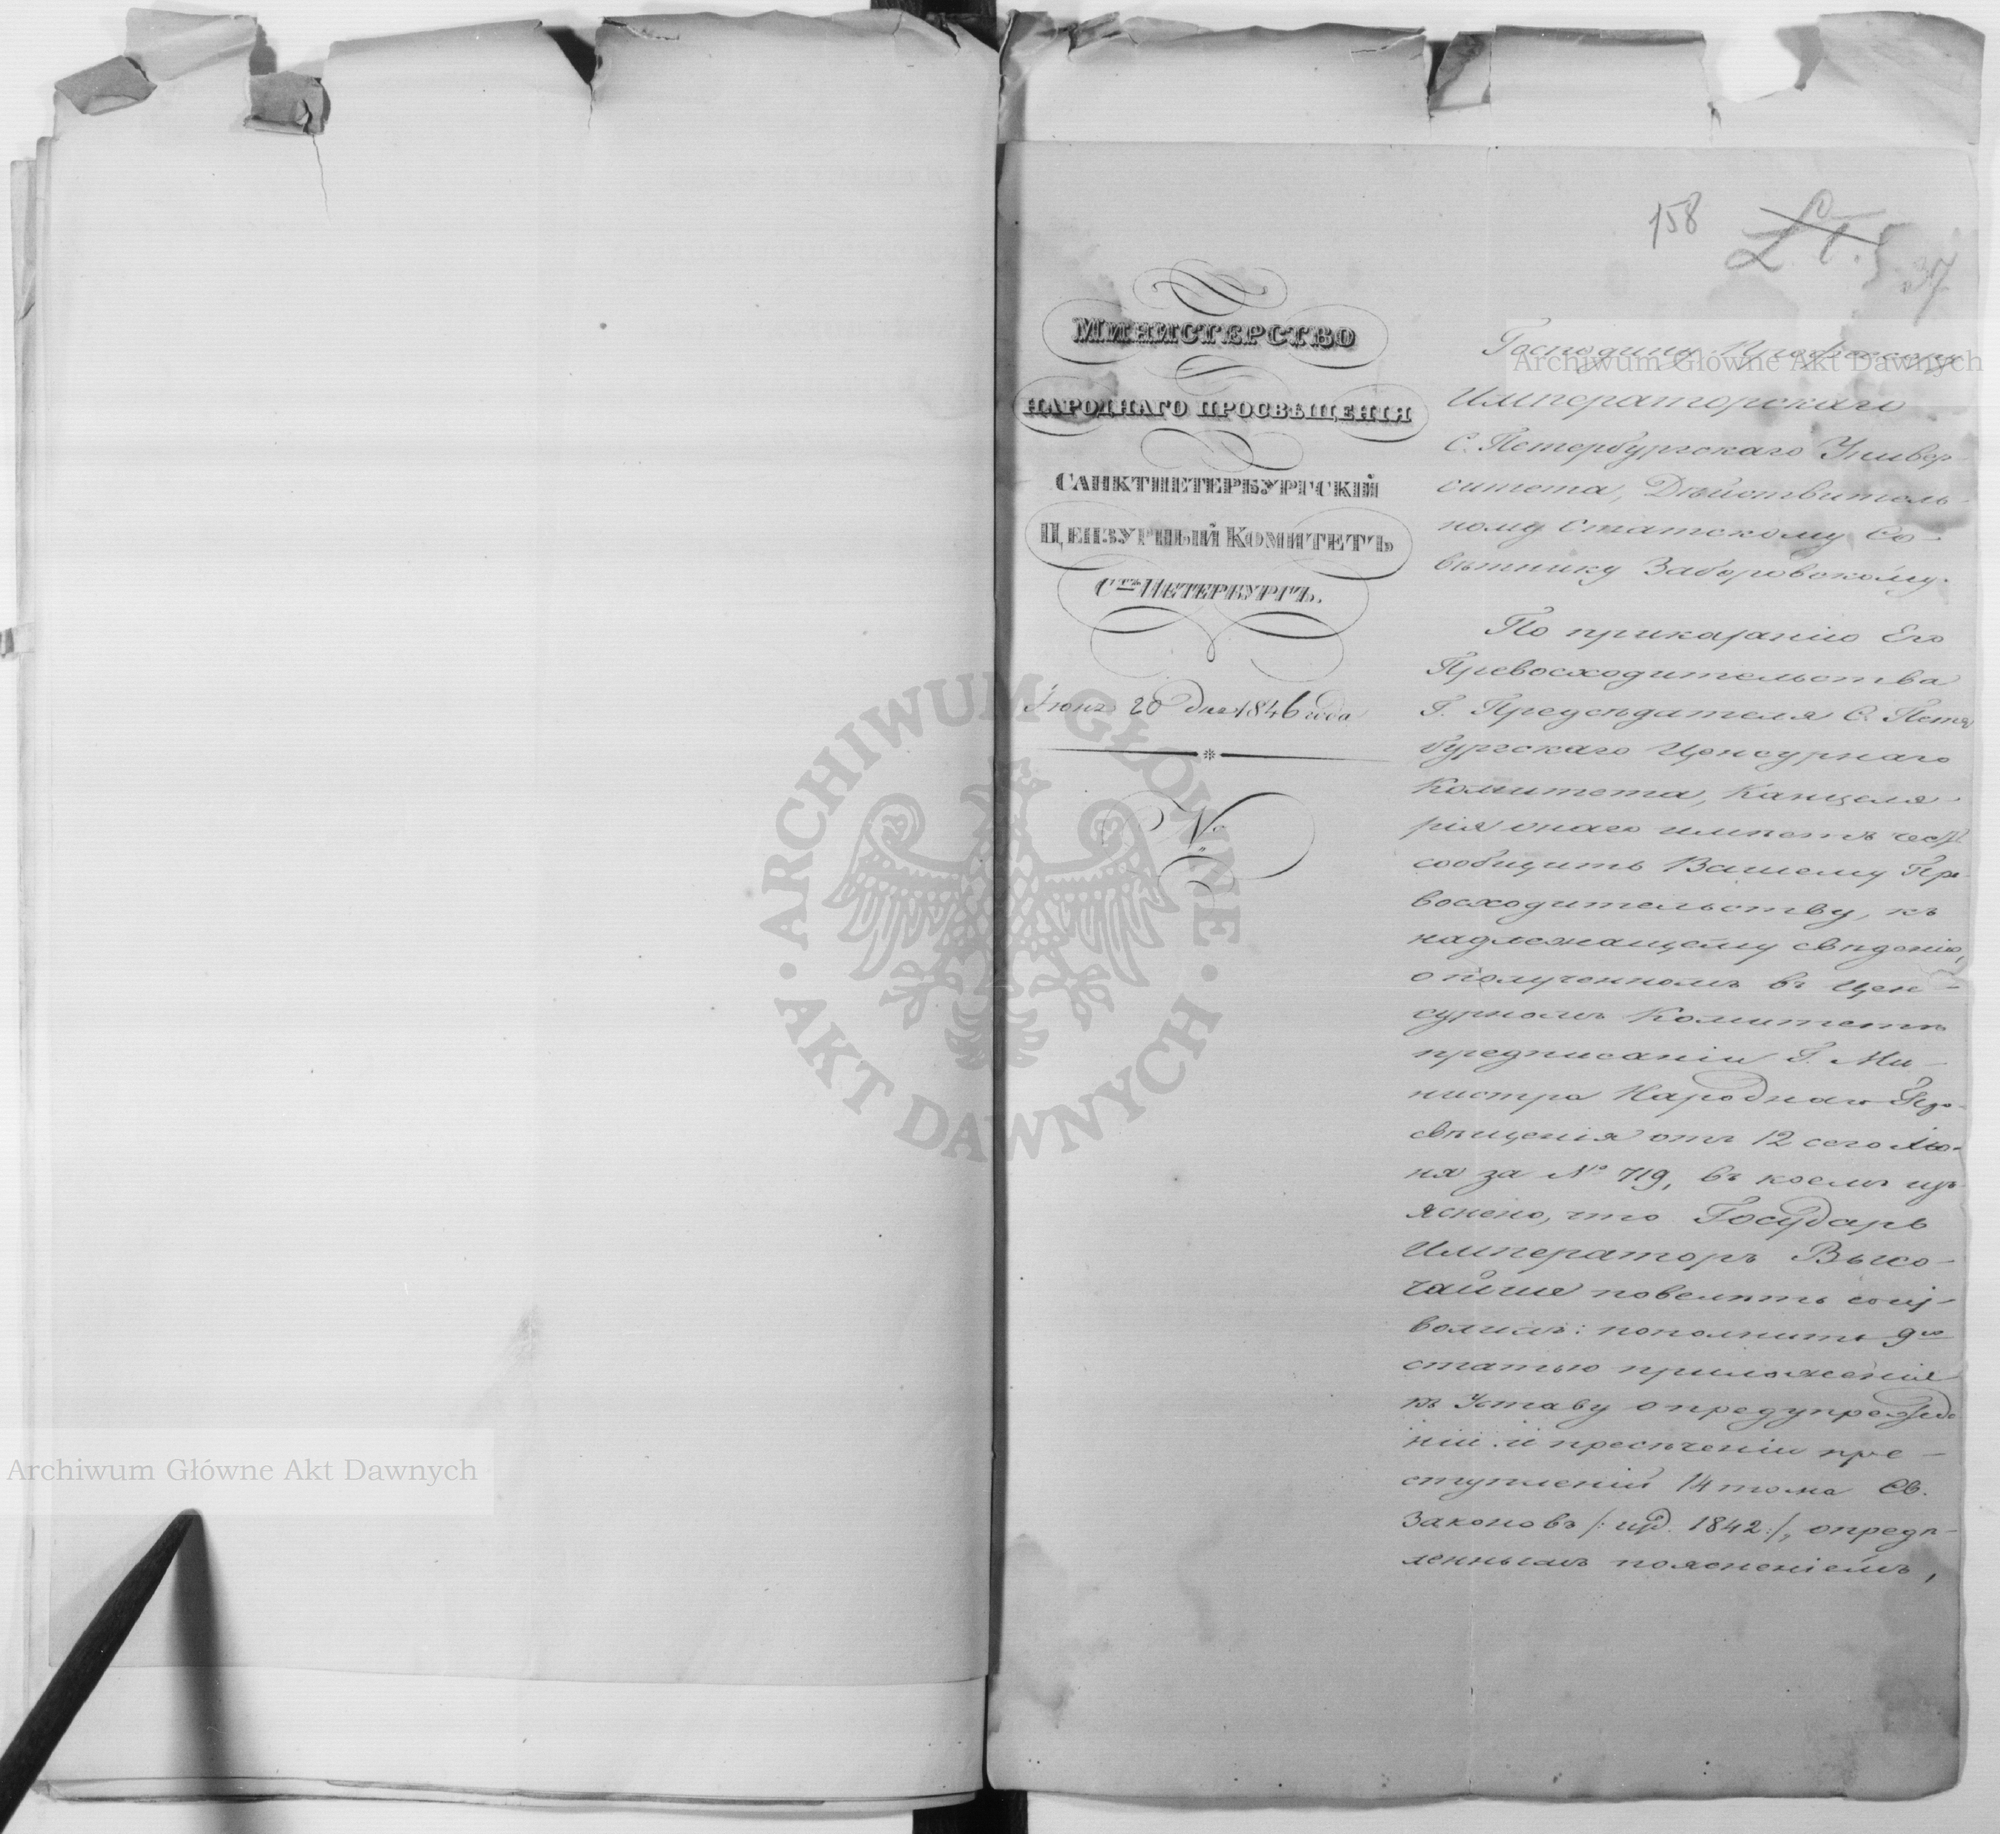 158
37
Министерство
народнаго просвѣщенія
Санктпетербургскій
Цензурный Комитетъ
Стъ Петербургъ.
Іюня 20 дня 1846 года
№
Господину Профессору
Императорскаго
С. Петербургскаго Универ-
ситета, Дѣйствитель-
ному Статскому Со-
вѣтнику Заборовскому.
По приказанію Его
Превосходительства
Г. Предсѣдателя С. Петер
бургскаго Ценсурнаго
Комитета, Канцеля-
рія онаго имѣетъ честь
сообщить Вашему Пре
восходительству, къ
надлежащему свѣдѣнію,
о полученномъ въ Цен-
сурномъ Комитетѣ
предписаніи Г. Ми-
нистра Народнаго Про-
свѣщенія отъ 12 сего Ію-
ня за № 719, въ коемъ изъ
яснено, что Государь
Императоръ Высо-
чайше повелѣть соиз-
волилъ: пополнить 9ую
статью приложенія
къ Уставу о предупрежде
ніи и пресѣченіи пре-
ступленій 14 тома Св.
Законовъ /: изд. 1842:/, опредѣ-
леннымъ поясненіемъ,
Archiwum Główne Akt Dawnych
Archiwum Główne Akt Dawnych
ARCHIWUM GŁÓWNE · AKT DAWNYCH ·